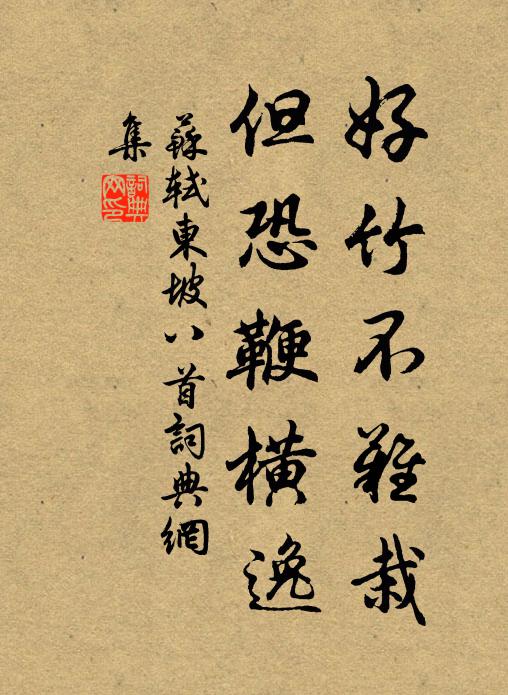 好竹不難栽
但恐鞭橫逸
蘇軾東坡八首詞典網
集
詞典網印